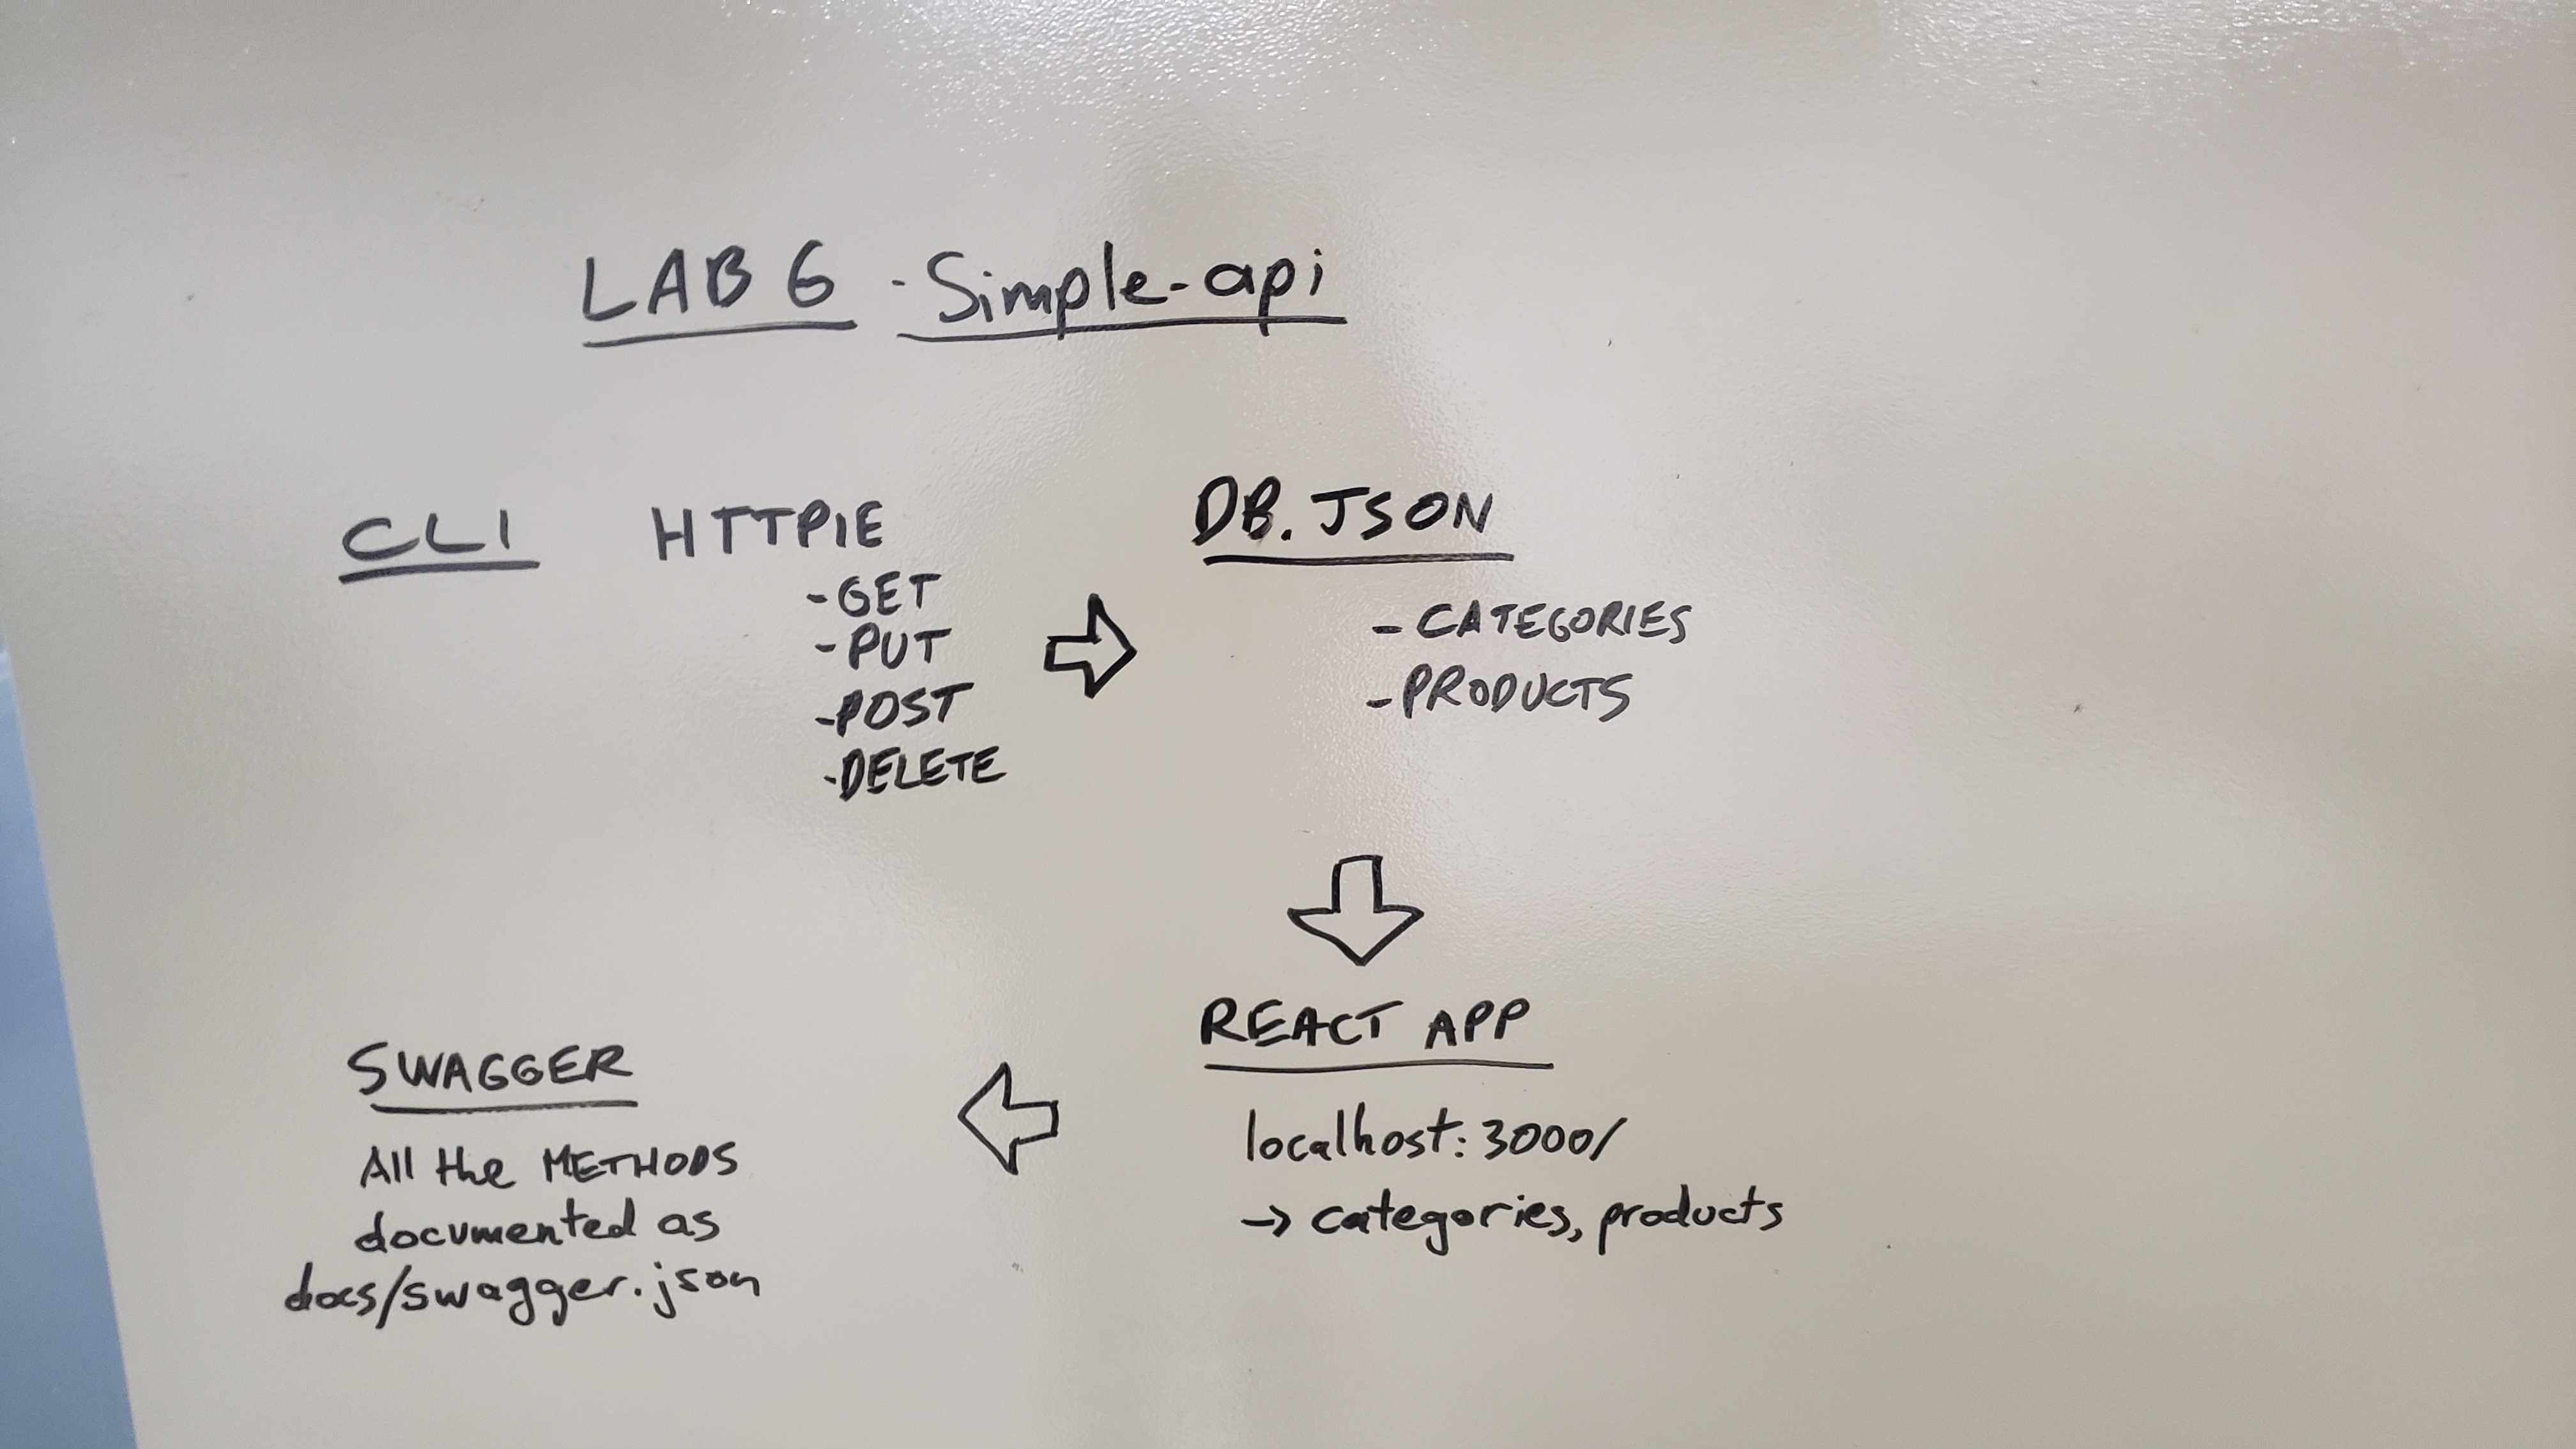 LAB 6 - Simple-api
CLI HTTPIE
- GET
- PUT
- POST
- DELETE
DB.JSON
- CATEGORIES
- PRODUCTS
REACT APP
localhost:3000/
→ categories, products
SWAGGER
All the METHODS
documented as
docs/swagger.json